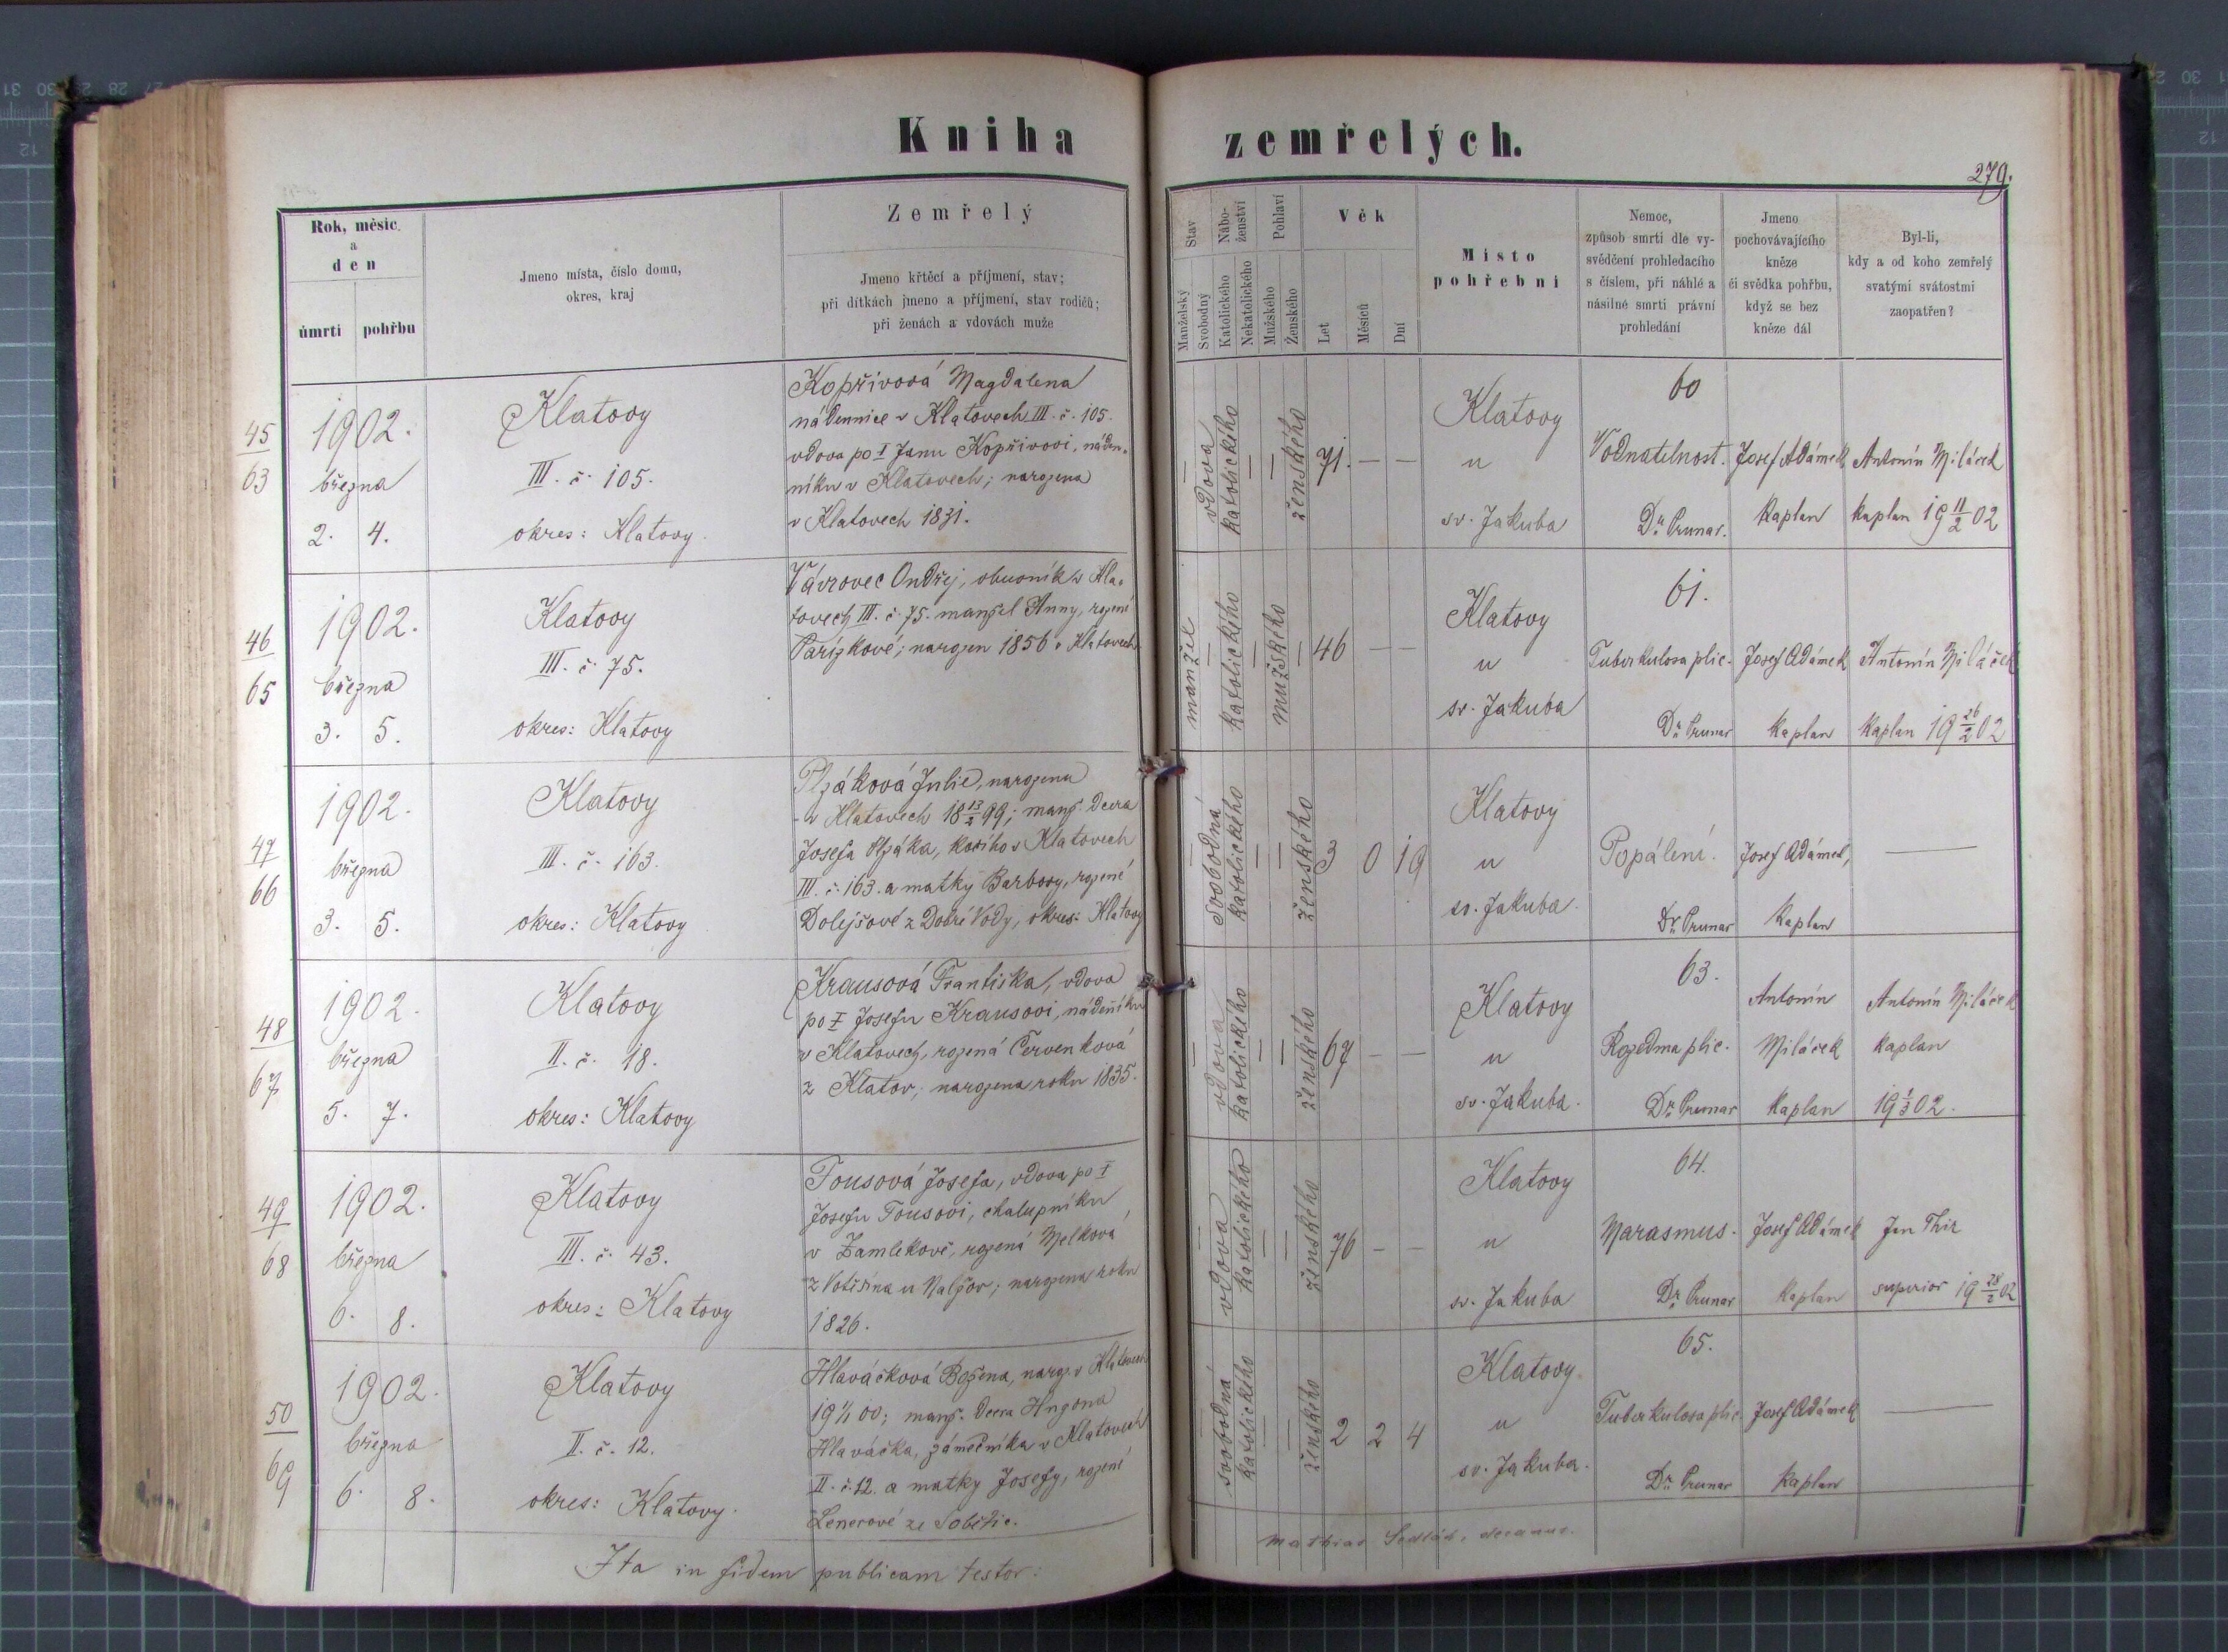 Kniha zemřelých.
279.
Rok, měsíc
a
den
úmrtí pohřbu
Jmeno místa, číslo domu,
okres, kraj
Zemřelý
Jmeno křtěcí a příjmení, stav;
při dítkách jmeno a příjmení, stav rodičů;
při ženách a vdovách muže
Stav
Manželský
Svobodný
Nábo-
ženství
Katolického
Nekatolického
Pohlaví
Mužského
Ženského
Věk
Let
Měsíců
Dní
Místo
pohřební
Nemoc,
způsob smrti dle vy-
svědčení prohledacího
s číslem, při náhlé a
násilné smrti právní
prohledání
Jmeno
pochovávajícího
kněze
či svědka pohřbu,
když se bez
kněze dál
Byl-li,
kdy a od koho zemřelý
svatými svátostmi
zaopatřen?
45
63
1902.
března
2. 4.
Klatovy
III. č. 105.
okres: Klatovy.
Kopřivová Magdalena
nádennice v Klatovech III. č. 105.
vdova po † Janu Kopřivovi, náden-
níku v Klatovech; narozena
v Klatovech 1831.
vdova
katolického
ženského
71. — —
Klatovy
u
sv. Jakuba
60
Vodnatelnost.
Dr. Prunar.
Josef Adámek
kaplan
Antonín Miláček
kaplan 19 11/2 02
46
65
1902.
března
3. 5.
Klatovy
III. č. 75.
okres: Klatovy
Vávrovec Ondřej, obuvník v Kla-
tovech III. č. 75. manžel Anny, rozené
Pařízkové; narozen 1856 v Klatovech
manžel
katolického
mužského
46 — —
Klatovy
u
sv. Jakuba
61.
Tuberkulosa plic.
Dr. Prunar
Josef Adámek
kaplan
Antonín Miláček
kaplan 19 26/2 02
47
66
1902.
března
3. 5.
Klatovy
III. č. 163.
okres: Klatovy
Plzáková Julie, narozena
v Klatovech 18 13/2 99; manž. dcera
Josefa Plzáka, v Klatovech
III. č. 163. a matky Barbory, rozené
Dolejšové z Dobré Vody, okres: Klatovy
svobodná
katolického
ženského
3 0 19
Klatovy
u
sv. Jakuba.
Popálení.
Dr. Prunar
Josef Adámek,
kaplan
—
48
67
1902.
března
5. 7.
Klatovy
II. č. 18.
okres: Klatovy
Krausová Františka, vdova
po † Josefu Krausovi, nádeníku
v Klatovech, rozená Červenková
z Klatov; narozena roku 1835.
vdova
katolického
ženského
67 — —
Klatovy
u
sv. Jakuba.
63.
Rozedma plic.
Dr. Prunar
Antonín
Miláček
kaplan
Antonín Miláček
kaplan
02.
49
68
1902.
března
6. 8.
Klatovy
III. č. 43.
okres: Klatovy
Tousová Josefa, vdova po †
Josefu Tousovi, chalupníku
v Zamlekově, rozená Melková
u Nalžov; narozena roku
1826.
vdova
katolického
ženského
76 — —
Klatovy
u
sv. Jakuba
64.
Marasmus.
Dr. Prunar
Josef Adámek
kaplan
Jan Thir
superior 19 28/2 02
50
69
1902.
března
6. 8.
Klatovy
II. č. 12.
okres: Klatovy.
Hlaváčková Božena, naroz. v Klatovech
19 1/1 00; manž. dcera Hugona
Hlaváčka, zámečníka v Klatovech
II. č. 12. a matky Josefy, rozené
Lenerové ze Sobětic.
svobodná
katolického
ženského
2 2 4
Klatovy.
u
sv. Jakuba.
65.
Tuberkulosa plic.
Dr. Prunar
Josef Adámek
kaplan
—
Ita in fidem publicam testor:
Mathias Sedlák, decanus.